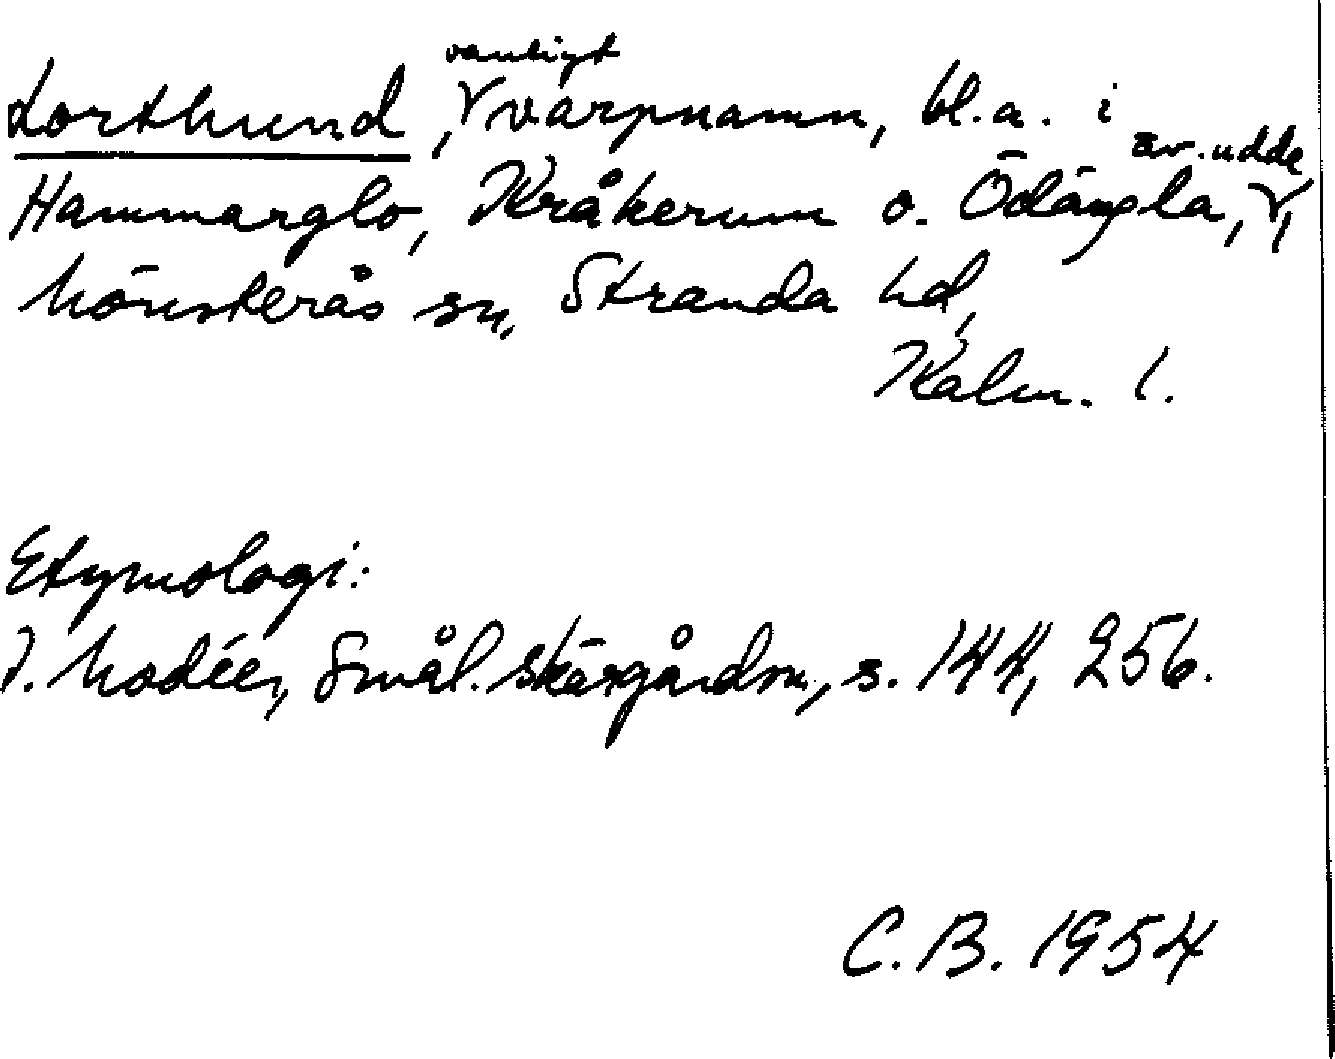 Lorthund, vanligt varpnamn, bl.a. i
Hammarglo, Kråkerum o. Ödängla, äv. udde,
Mönsterås sn, Stranda hd,
Kalm. l.
Etymologi:
I. Modéer, Smål. skärgårdsn., s. 144, 256.
C.B. 1954